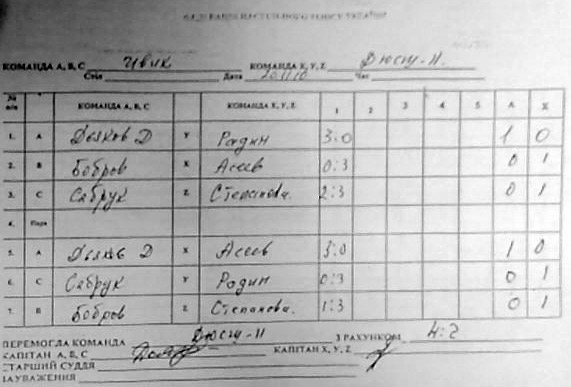 ФЕДЕРАЦІЯ НАСТІЛЬНОГО ТЕНІСУ УКРАЇНИ
КОМАНДА А, В, С Ивик КОМАНДА X, Y, Z Дюсш-Н.
Стіл Дата 20.11.10 Час
№ п/п КОМАНДА А, В, С КОМАНДА X, Y, Z 1 2 3 4 5 А X
1. А Дьяков Д Y Радин 3:0 1 0
2. В Бобров X Асеев 0:3 0 1
3. С Сабрук Z Степанова. 2:3 0 1
4. Пара
5. А Дьяков Д X Асеев 3:0 1 0
6. С Сабрук Y Радин 0:3 0 1
7. В Бобров Z Степанова. 1:3 0 1
ПЕРЕМОГЛА КОМАНДА Дюсш-Н З РАХУНКОМ 4:2
КАПІТАН А, В, С КАПІТАН X, Y, Z
СТАРШИЙ СУДДЯ
ЗАУВАЖЕННЯ